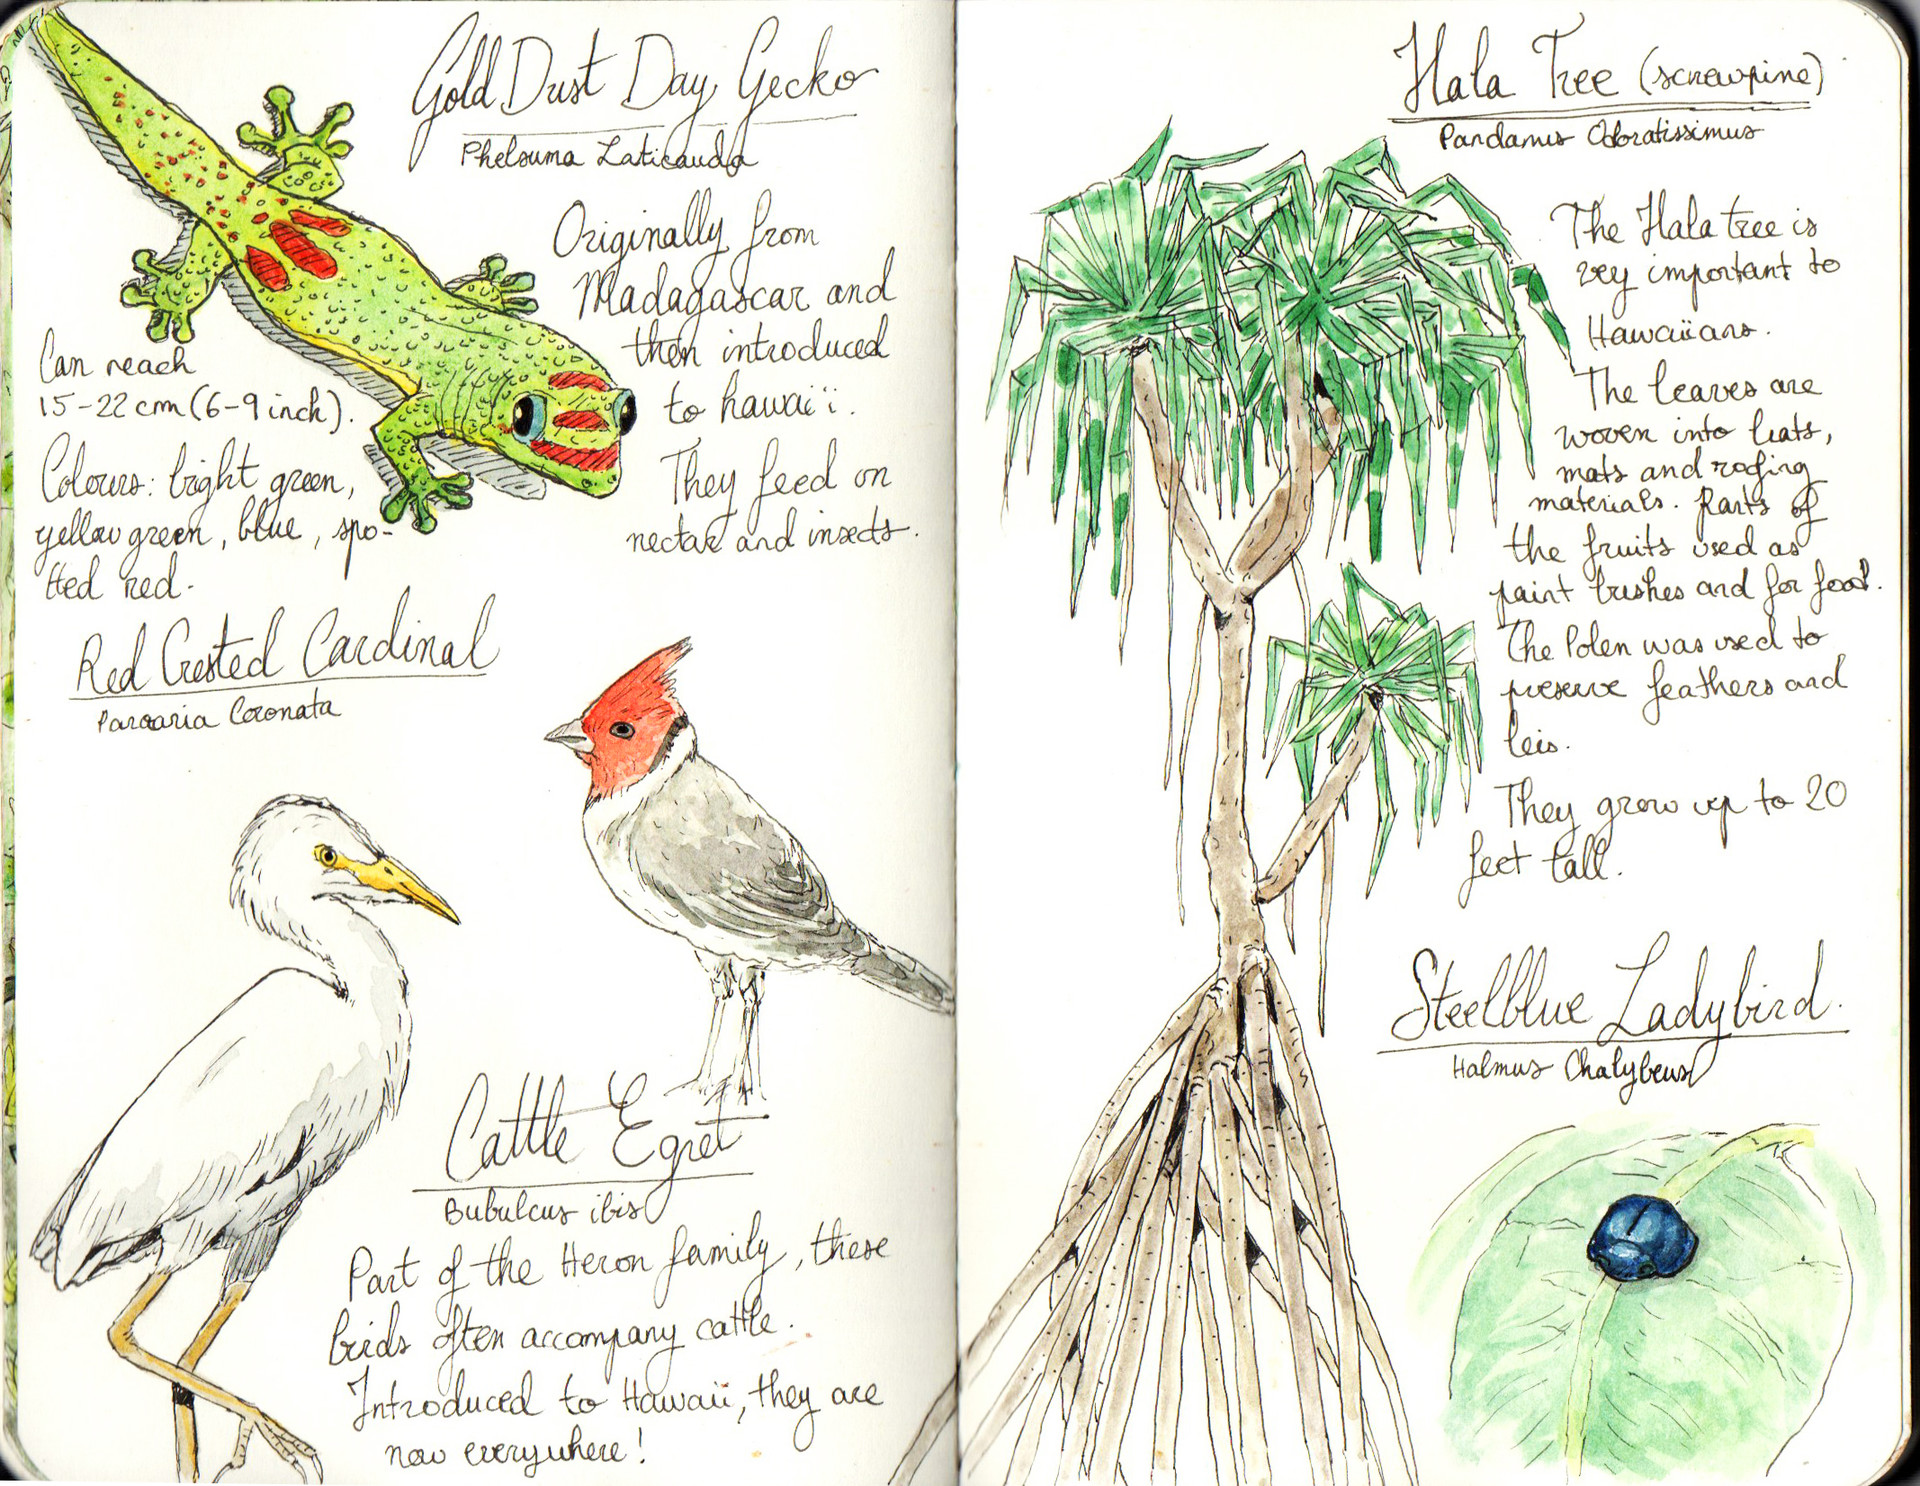 Gold Dust Day Gecko
Phelsuma Laticauda
Originally from
Madagascar and
then introduced
to hawaï'i.
They feed on
nectar and insects.
Can reach
15-22 cm (6-9 inch).
Colours: bright green,
yellow green, blue, spo-
tted red.
Red Crested Cardinal
Paroaria Coronata
Cattle Egret
Bubulcus ibis
Part of the Heron family, these
birds often accompany cattle.
Introduced to Hawaii, they are
now everywhere!
Hala Tree (screwpine)
Pandanus Odoratissimus
The Hala tree is
very important to
Hawaiians.
The leaves are
woven into hats,
mats and roofing
materials. Parts of
the fruits used as
paint brushes and for food.
The Polen was used to
preserve feathers and
leis.
They grow up to 20
feet tall.
Steelblue Ladybird.
Halmus Chalybeus